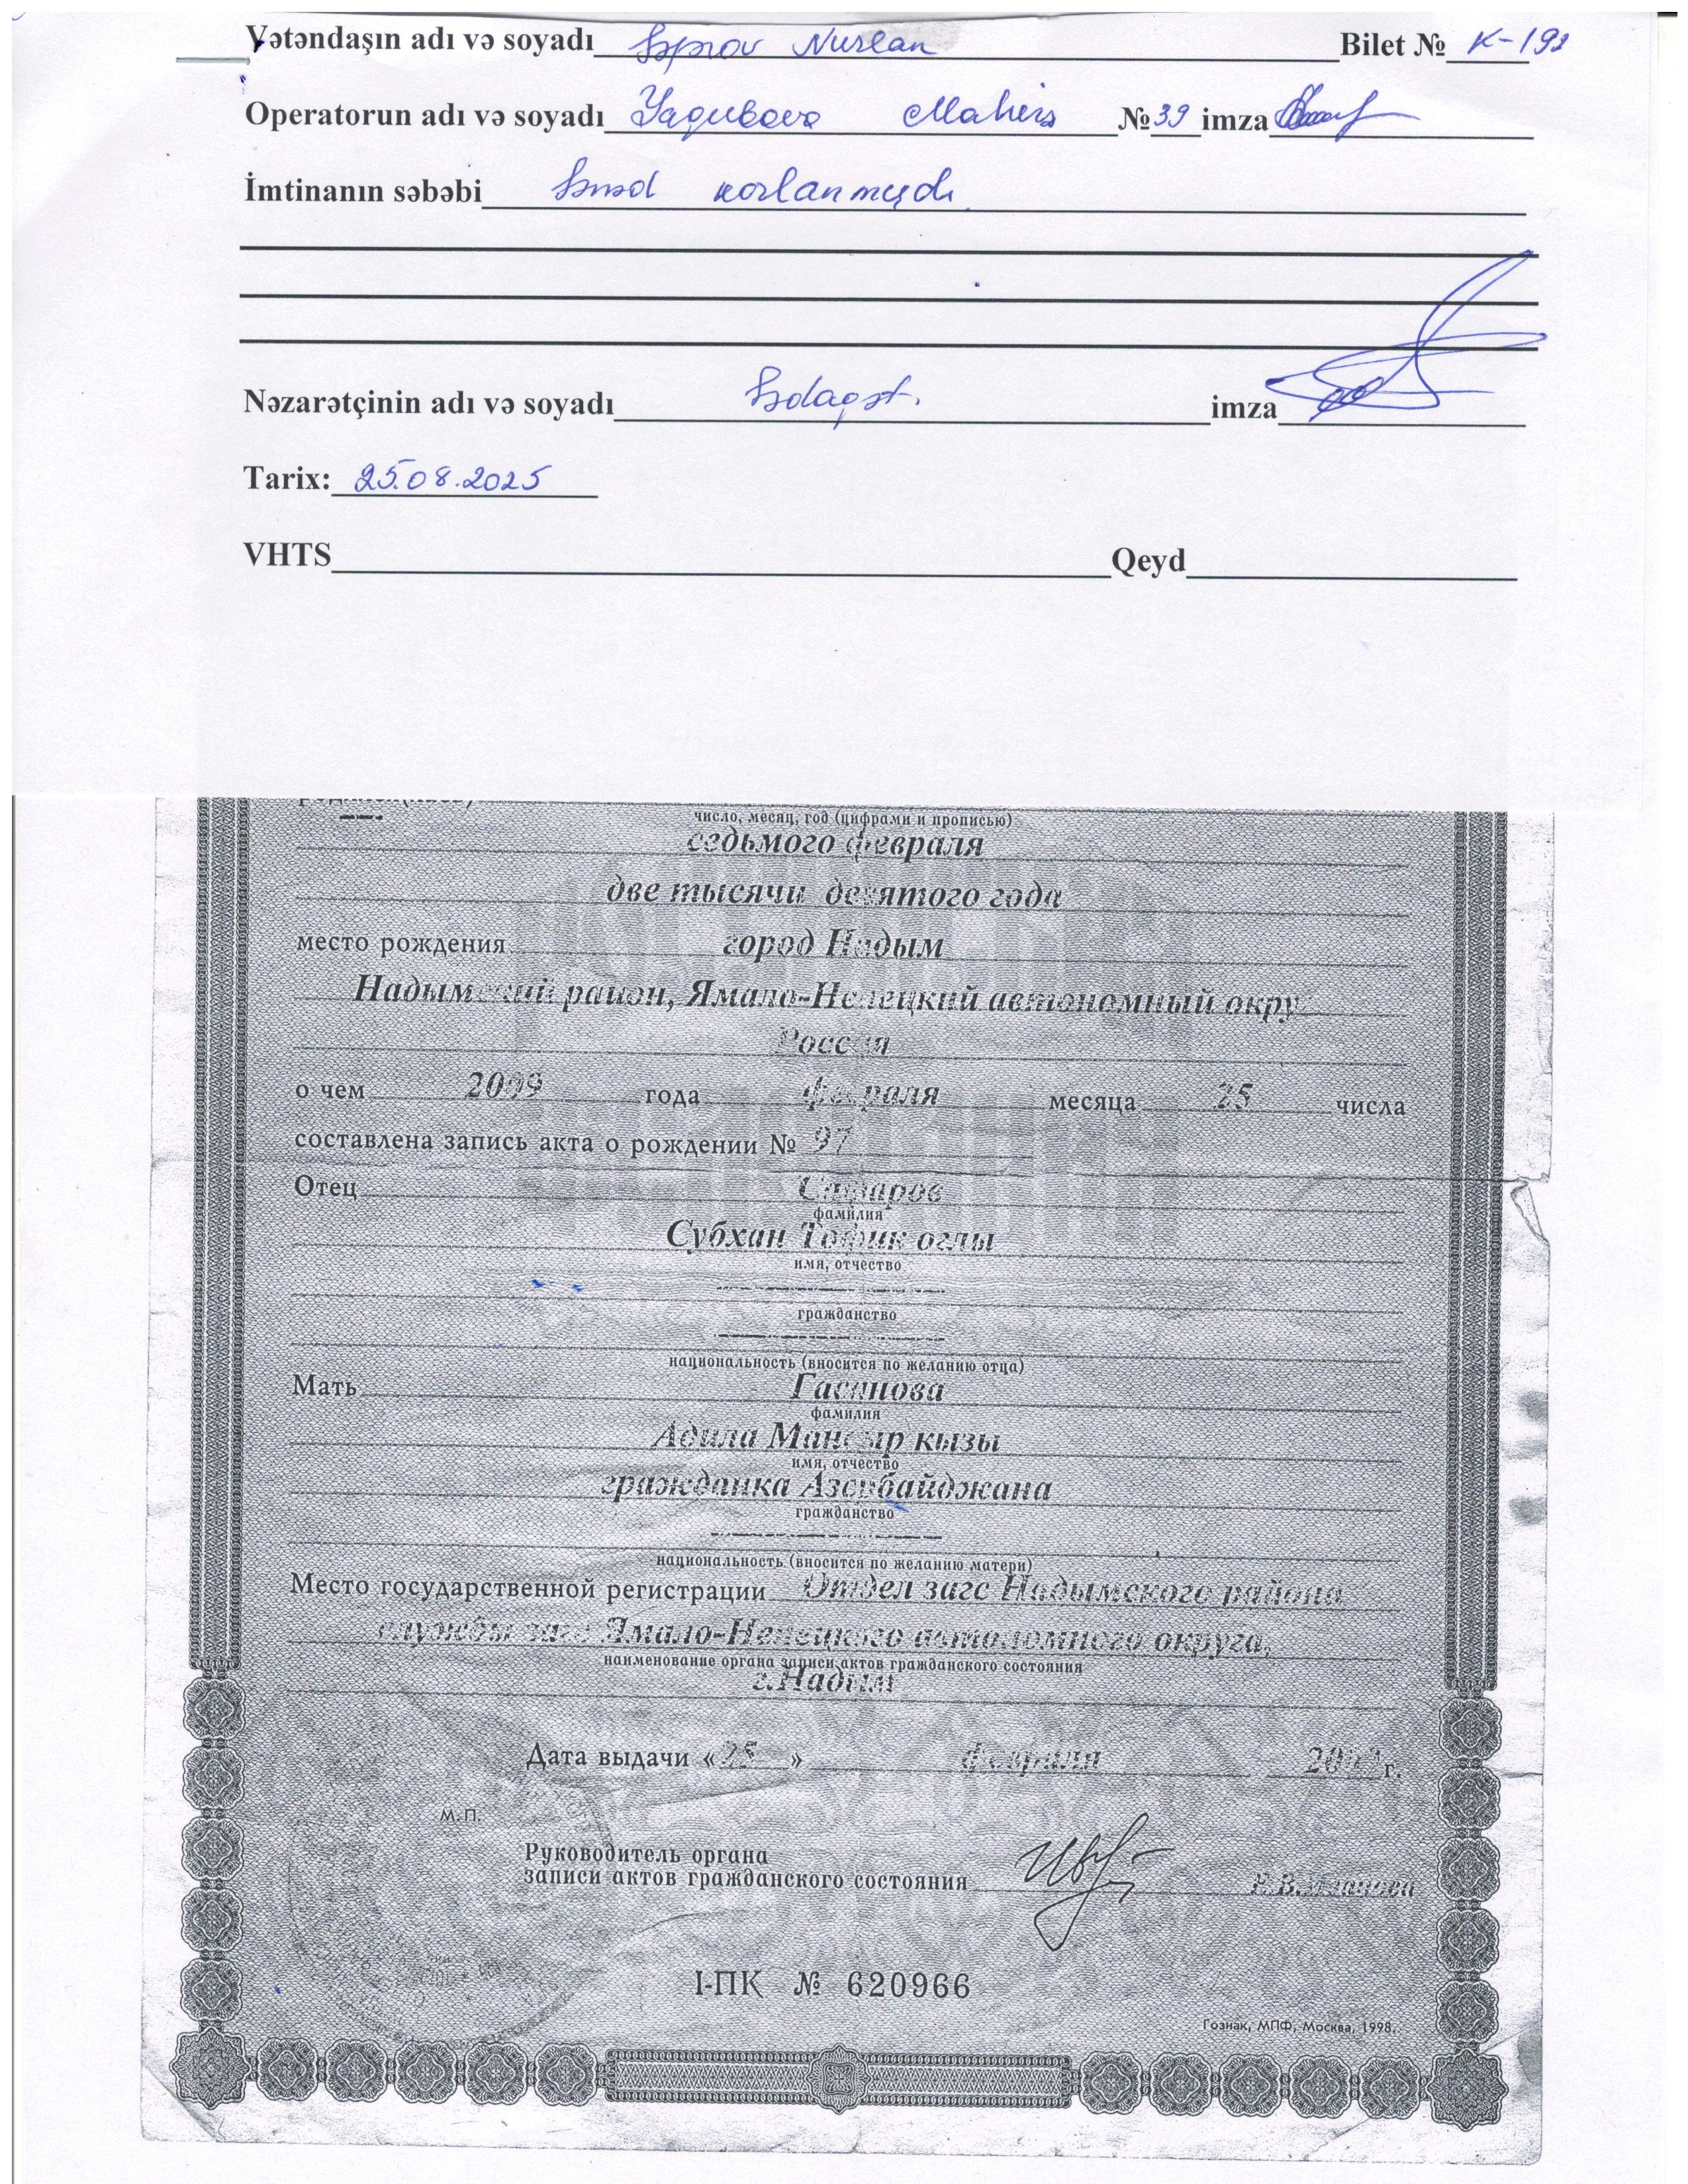 Vətəndaşın adı və soyadı Nurlan Bilet № K-192
Operatorun adı və soyadı Yaqubova Mahirə № 39 imza
İmtinanın səbəbi Sənəd
Nəzarətçinin adı və soyadı Sədaqət. imza
Tarix: 25.08.2025
VHTS Qeyd
число, месяц, год (цифрами и прописью)
седьмого февраля
две тысячи девятого года
место рождения город Надым
Надымский район, Ямало-Ненецкий автономный окру
Россия
о чем 2009 года февраля месяца 25 числа
составлена запись акта о рождении № 97
Отец
фамилия
Субхан Тофик оглы
имя, отчество
гражданство
национальность (вносится по желанию отца)
Мать Гасанова
фамилия
Адила Мансыр кызы
имя, отчество
гражданка Азербайджана
гражданство
национальность (вносится по желанию матери)
Место государственной регистрации Отдел загс Надымского района
службы загс Ямало-Ненецкого автономного округа,
наименование органа записи актов гражданского состояния
г.Надым
Дата выдачи «25» февраля г.
М.П.
Руководитель органа
записи актов гражданского состояния
I-ПК № 620966
Гознак, МПФ, Москва, 1998.